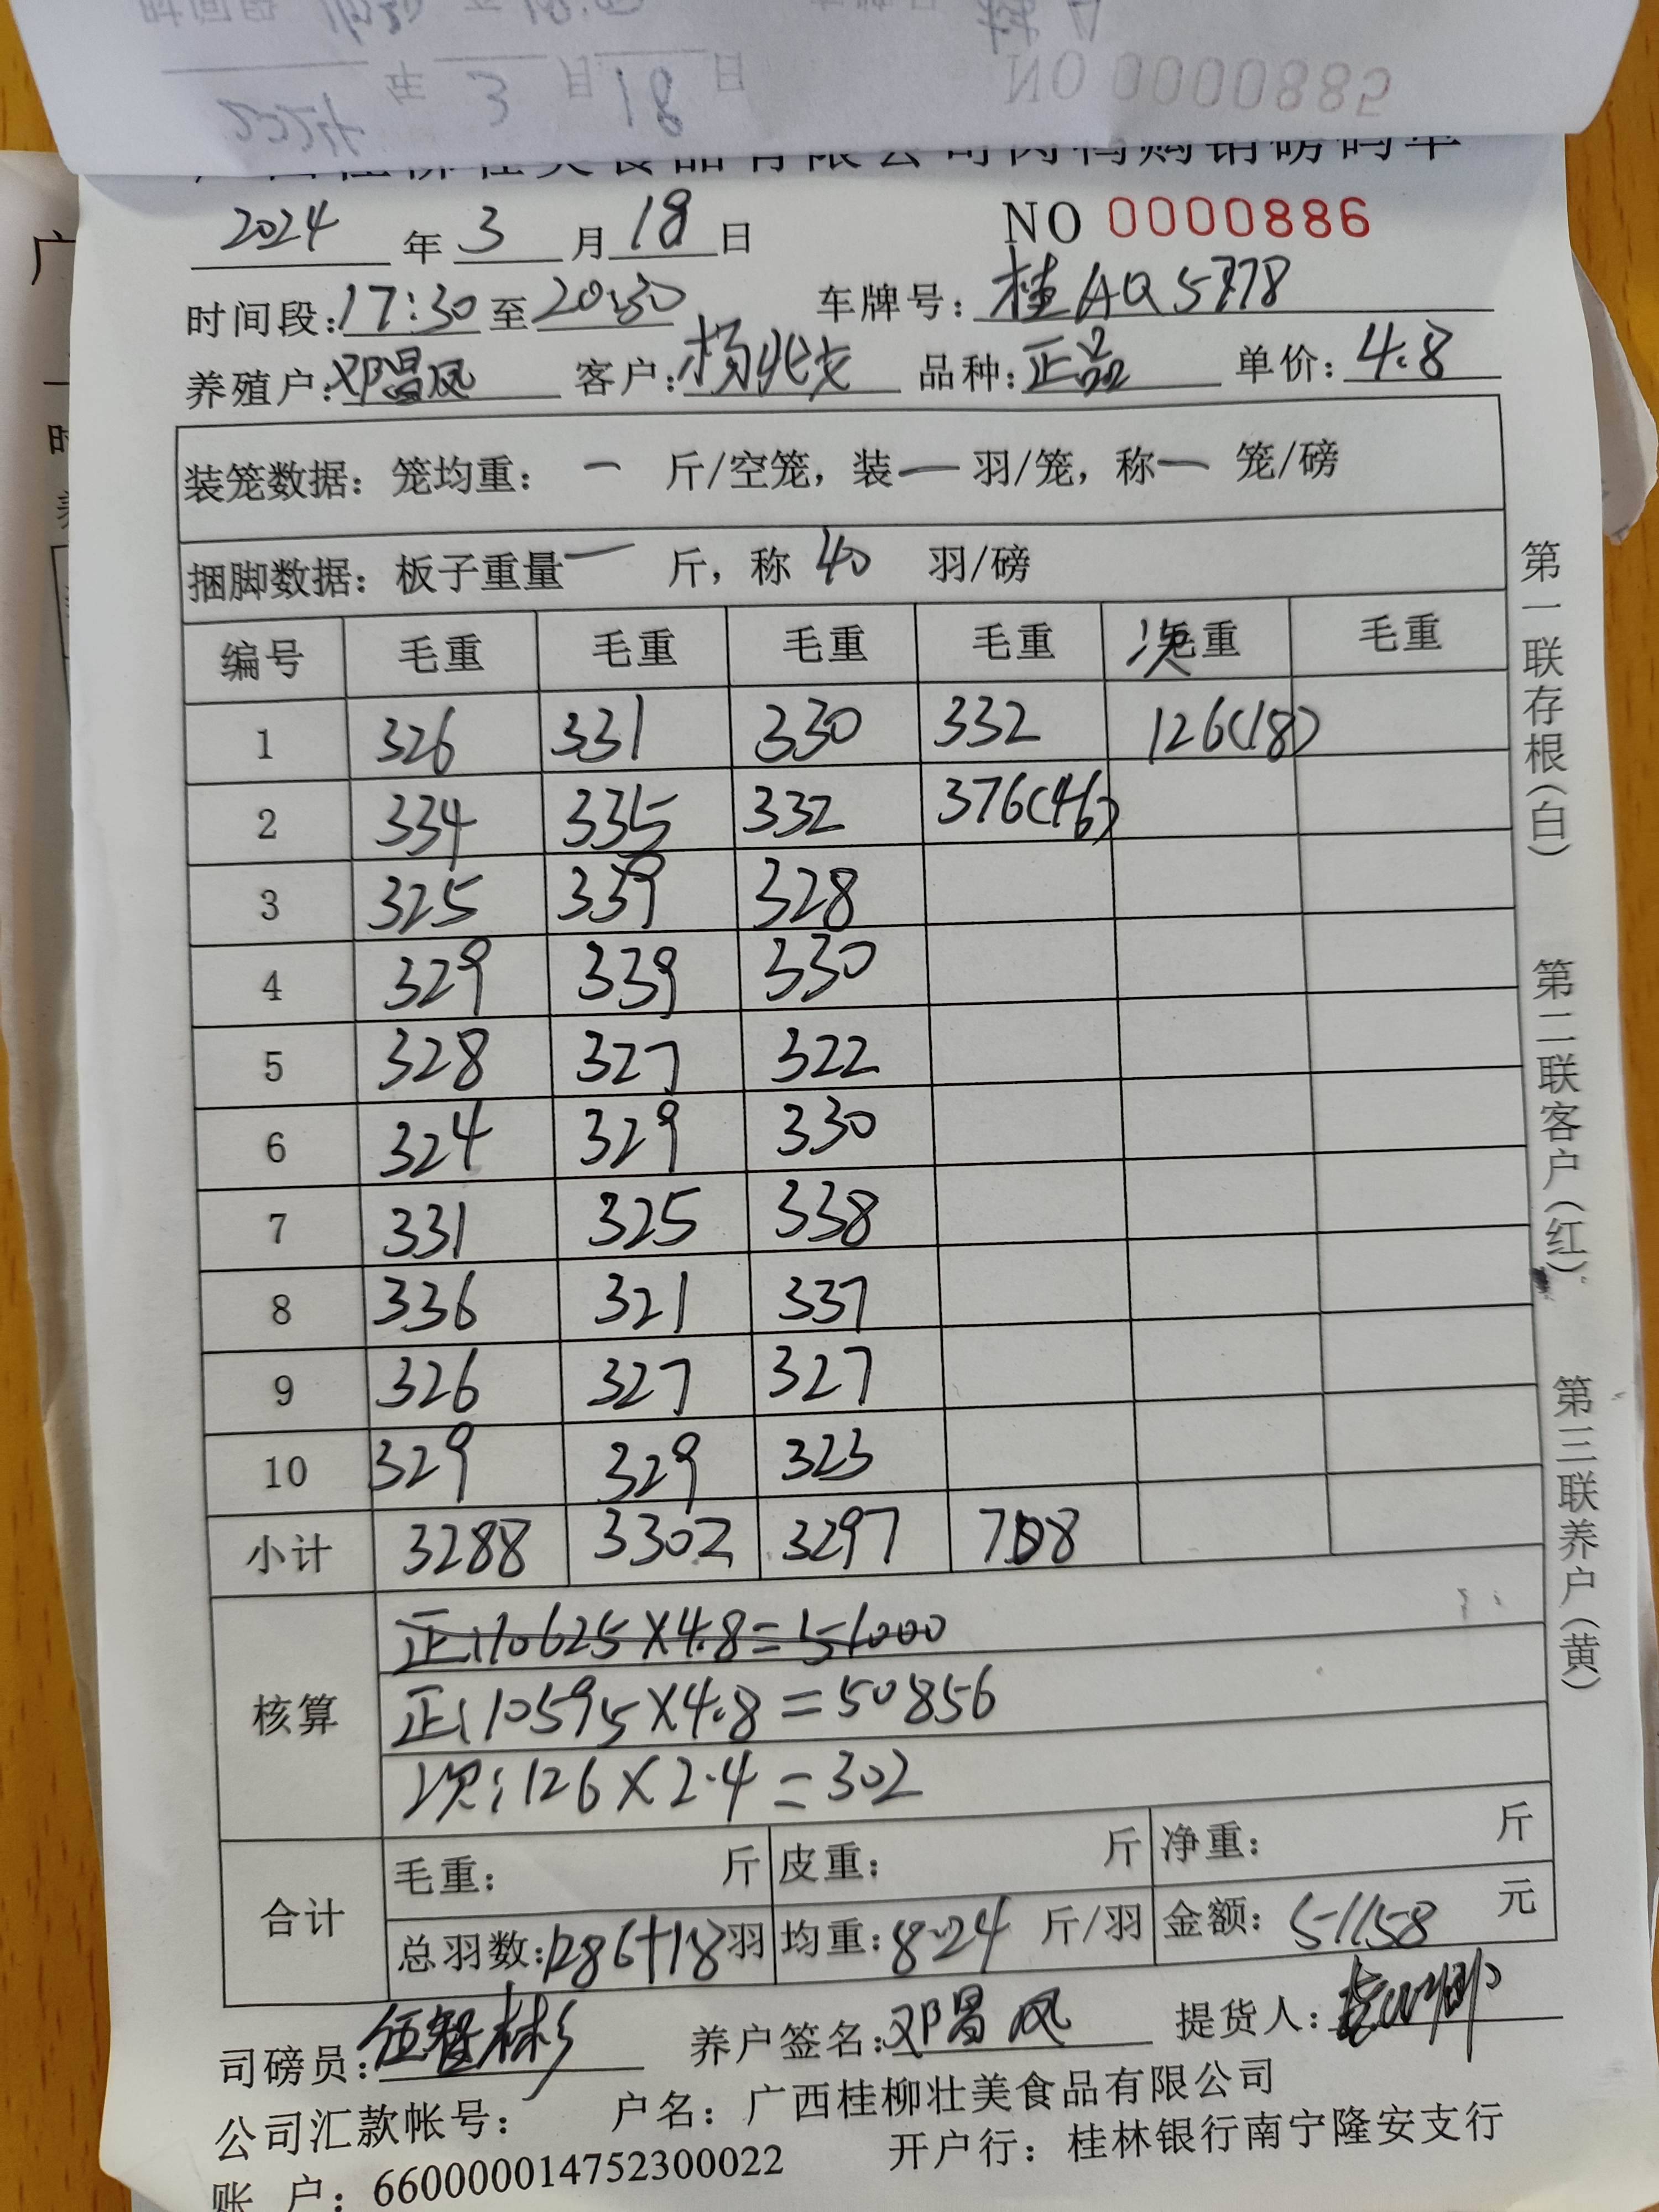 NO 0000885
2024 年 3 月 18 日
NO 0000886
2024 年 3 月 18 日
时间段: 17:30 至 20:30 车牌号: 桂AQ5778
养殖户: 邓昌凤 客户: 品种: 正品 单价: 4.8
装笼数据: 笼均重: 一 斤/空笼, 装 一 羽/笼, 称 一 笼/磅
捆脚数据: 板子重量 一 斤, 称 40 羽/磅
编号 毛重 毛重 毛重 毛重 次 毛重 毛重
1 326 331 330 332 126(18)
2 334 335 332 376(46)
3 325 339 328
4 329 339 330
5 328 327 322
6 324 329 330
7 331 325 338
8 336 321 337
9 326 327 327
10 329 329 323
小计 3288 3302 3297 708
正:10625×4.8=51000
核算 正:10595×4.8=50856
次:126×2.4=302
合计 毛重: 斤 皮重: 斤 净重: 斤
总羽数: 1286+18 羽 均重: 8.24 斤/羽 金额: 51158 元
司磅员: 伍智彬 养户签名: 邓昌凤 提货人:
公司汇款帐号: 户名: 广西桂柳壮美食品有限公司
账 户: 660000014752300022 开户行: 桂林银行南宁隆安支行
第一联存根(白) 第二联客户(红) 第三联养户(黄)